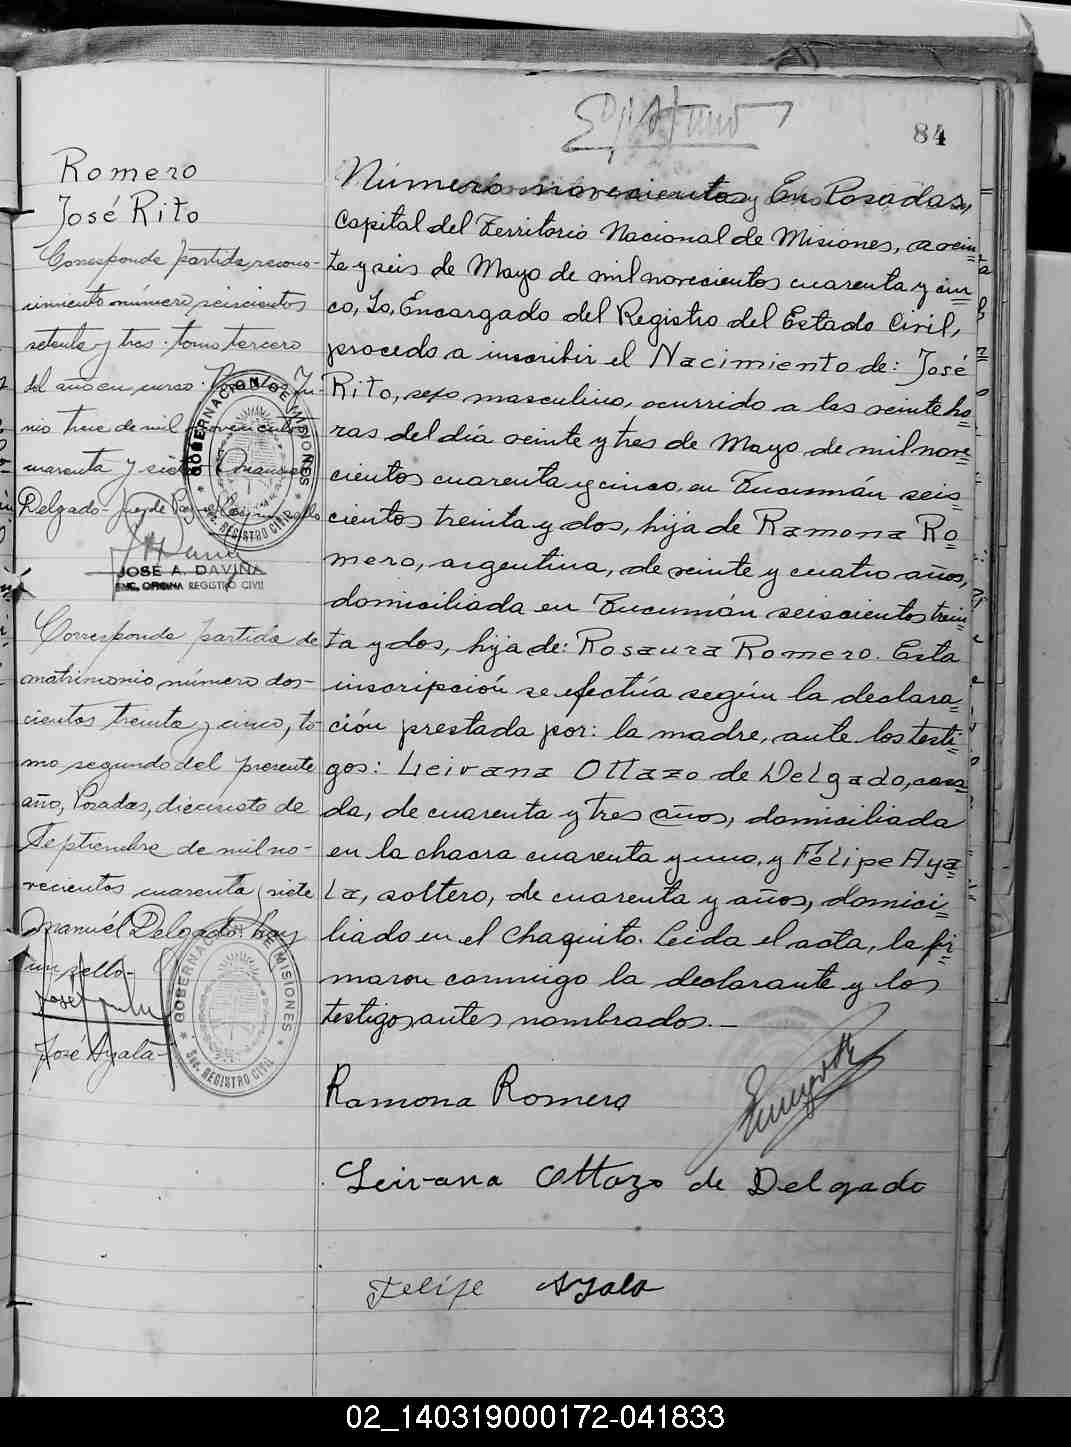 84
Romero
José Rito
Corresponde partida recono-
cimiento número seiscientos
setenta y tres - tomo tercero
del año en curso. Ju-
nio trece de mil novecientos
cuarenta y siete
Delgado - Juez de Paz
GOBERNACION DE MISIONES
Sec. REGISTRO CIVIL
JOSÉ A. DAVIÑA
ENC. OFICINA REGISTRO CIVIL
Corresponde partida de
matrimonio número dos-
cientos treinta y cinco, to-
mo segundo del presente
año, Posadas, dieciseis de
Septiembre de mil no-
vecientos cuarenta y siete
Manuél Delgado. hay
un sello-
José Ayala-
GOBERNACION DE MISIONES
Sec. REGISTRO CIVIL
Número novecientos y En Posadas,
Capital del Territorio Nacional de Misiones, a vein=
te y seis de Mayo de mil novecientos cuarenta y cin=
co, Yo, Encargado del Registro del Estado Civil,
procedo a inscribir el Nacimiento de: José
Rito, sexo masculino, ocurrido a las veinte ho=
ras del día veinte y tres de Mayo de mil nove=
cientos cuarenta y cinco, en Tucumán seis=
cientos treinta y dos, hijo de Ramona Ro=
mero, argentina, de veinte y cuatro años,
domiciliada en Tucumán seiscientos trein=
ta y dos, hija de: Rosaura Romero. Esta
inscripción se efectúa según la declara=
ción prestada por: la madre, ante los testi=
gos: Leivana Ottazo de Delgado, casa=
da, de cuarenta y tres años, domiciliada
en la chacra cuarenta y uno, y Félipe Aya=
la, soltero, de cuarenta y años, domici=
liado en el Chaquito. Leida el acta, la fir=
maron conmigo la declarante y los
testigos, antes nombrados.-
Ramona Romero
Leivana Ottazo de Delgado
Felipe Ayala
02_140319000172-041833